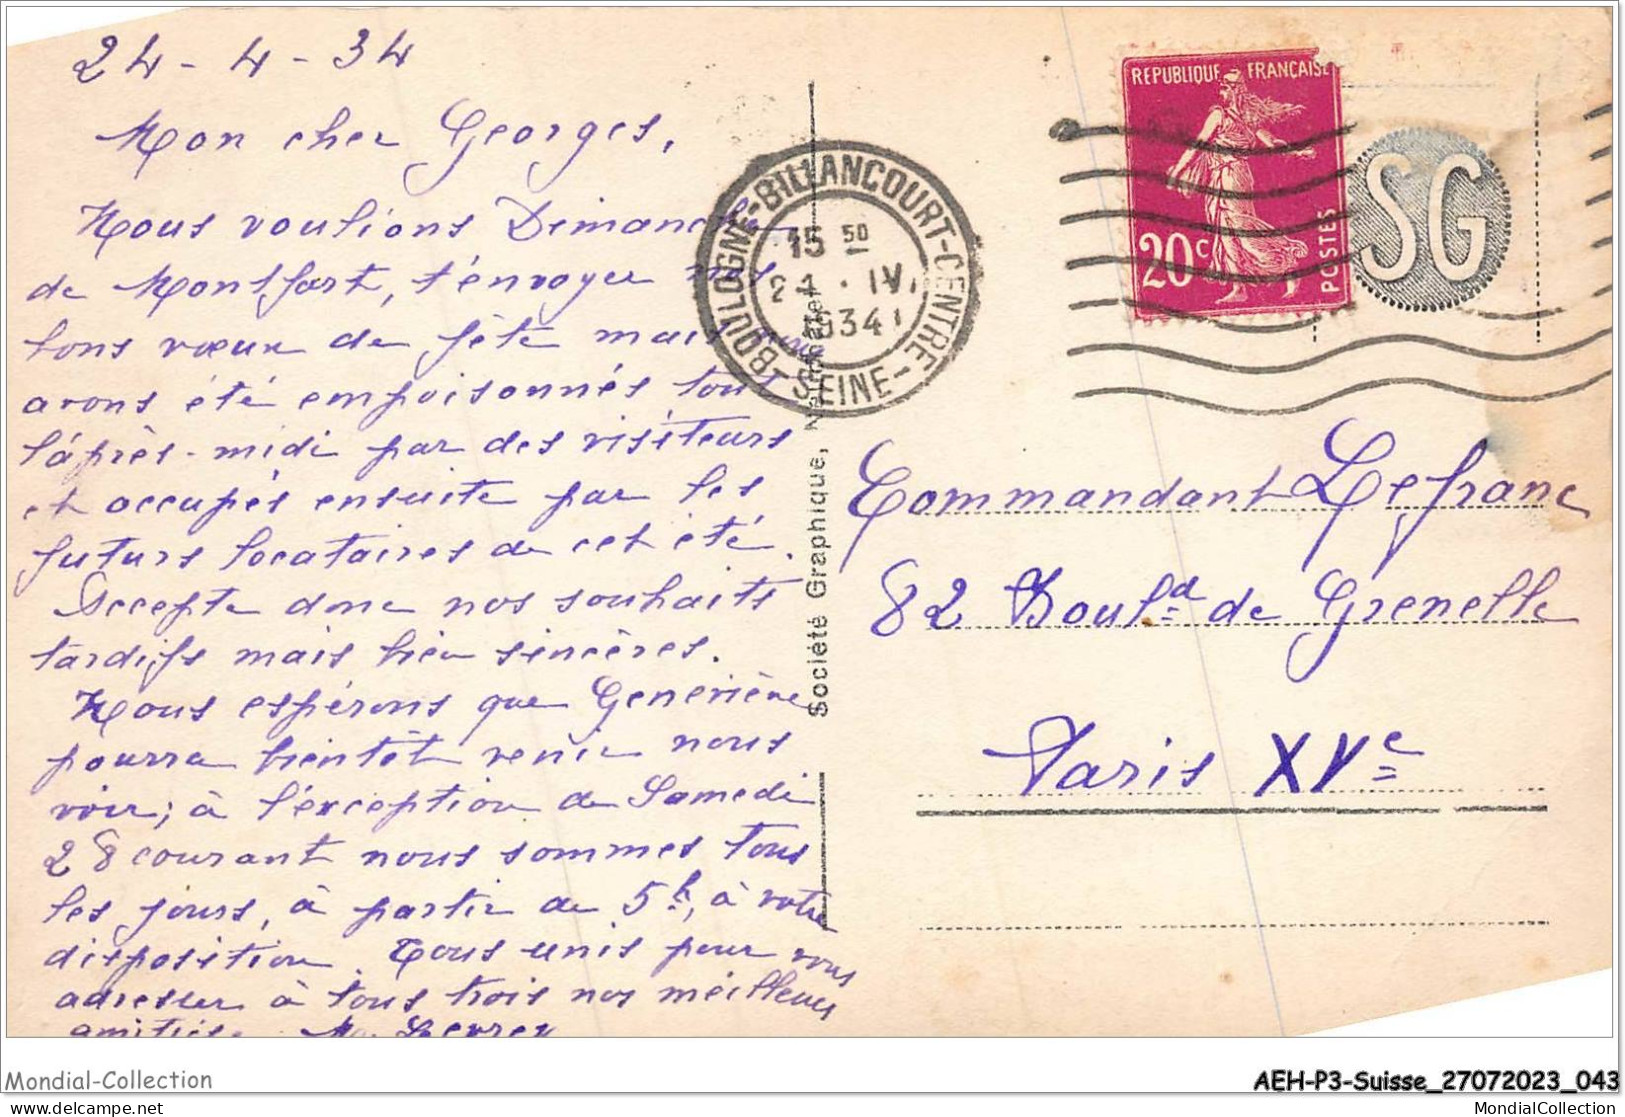 24-4-34
Mon cher Georges,
Nous voulions Dimanche
de Montfort, t'envoyer nos
bons vœux de fête mais nous
avons été empoisonnés tout
l'après-midi par des visiteurs
et occupés ensuite par les
futurs locataires de cet été.
Accepte donc nos souhaits
tardifs mais bien sincères.
Nous espérons que Geneviève
pourra bientôt venir nous
voir; à l'exception de Samedi
28 courant nous sommes tous
les jours, à partir de 5h, à votre
disposition. Tous unis pour vous
adresser à tous trois nos meilleures
amitiés.
Société Graphique,
BOULOGNE-BILLANCOURT-CENTRE
15 50
24 · IV
1934
-SEINE-
REPUBLIQUE FRANÇAISE
20c
POSTES
SG
Commandant Lefranc
82 Boul.d de Grenelle
Paris XVe
Mondial-Collection
AEH-P3-Suisse_27072023_043
delcampe.net
MondialCollection